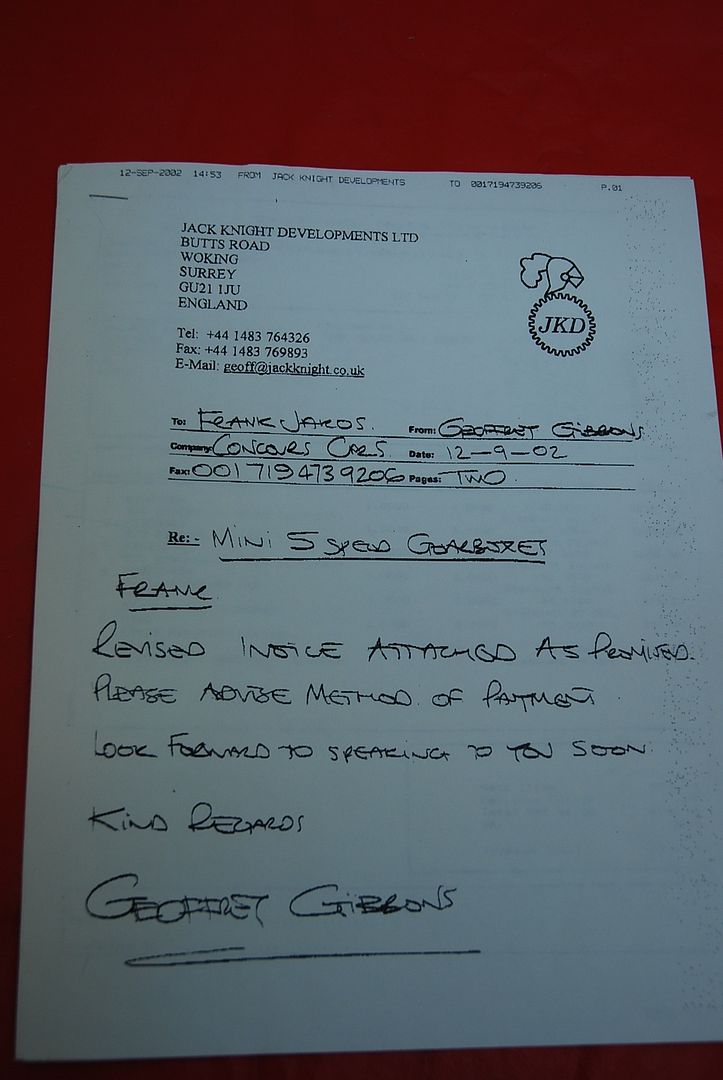 12-SEP-2002 14:53 FROM JACK KNIGHT DEVELOPMENTS TO 0017194739206 P.01
JACK KNIGHT DEVELOPMENTS LTD
BUTTS ROAD
WOKING
SURREY
GU21 1JU
ENGLAND
JKD
Tel: +44 1483 764326
Fax: +44 1483 769893
E-Mail: geoff@jackknight.co.uk
To: FRANK JAROS. From: GEOFFREY GIBBONS
Company: CONCOURS CARS Date: 12-9-02
Fax: 0017194739206 Pages: TWO
Re: - MINI 5 SPEED GEARBOXES
FRANK
REVISED INVOICE ATTACHED AS PROMISED.
PLEASE ADVISE METHOD OF PAYMENT
LOOK FORWARD TO SPEAKING TO YOU SOON
KIND REGARDS
GEOFFREY GIBBONS